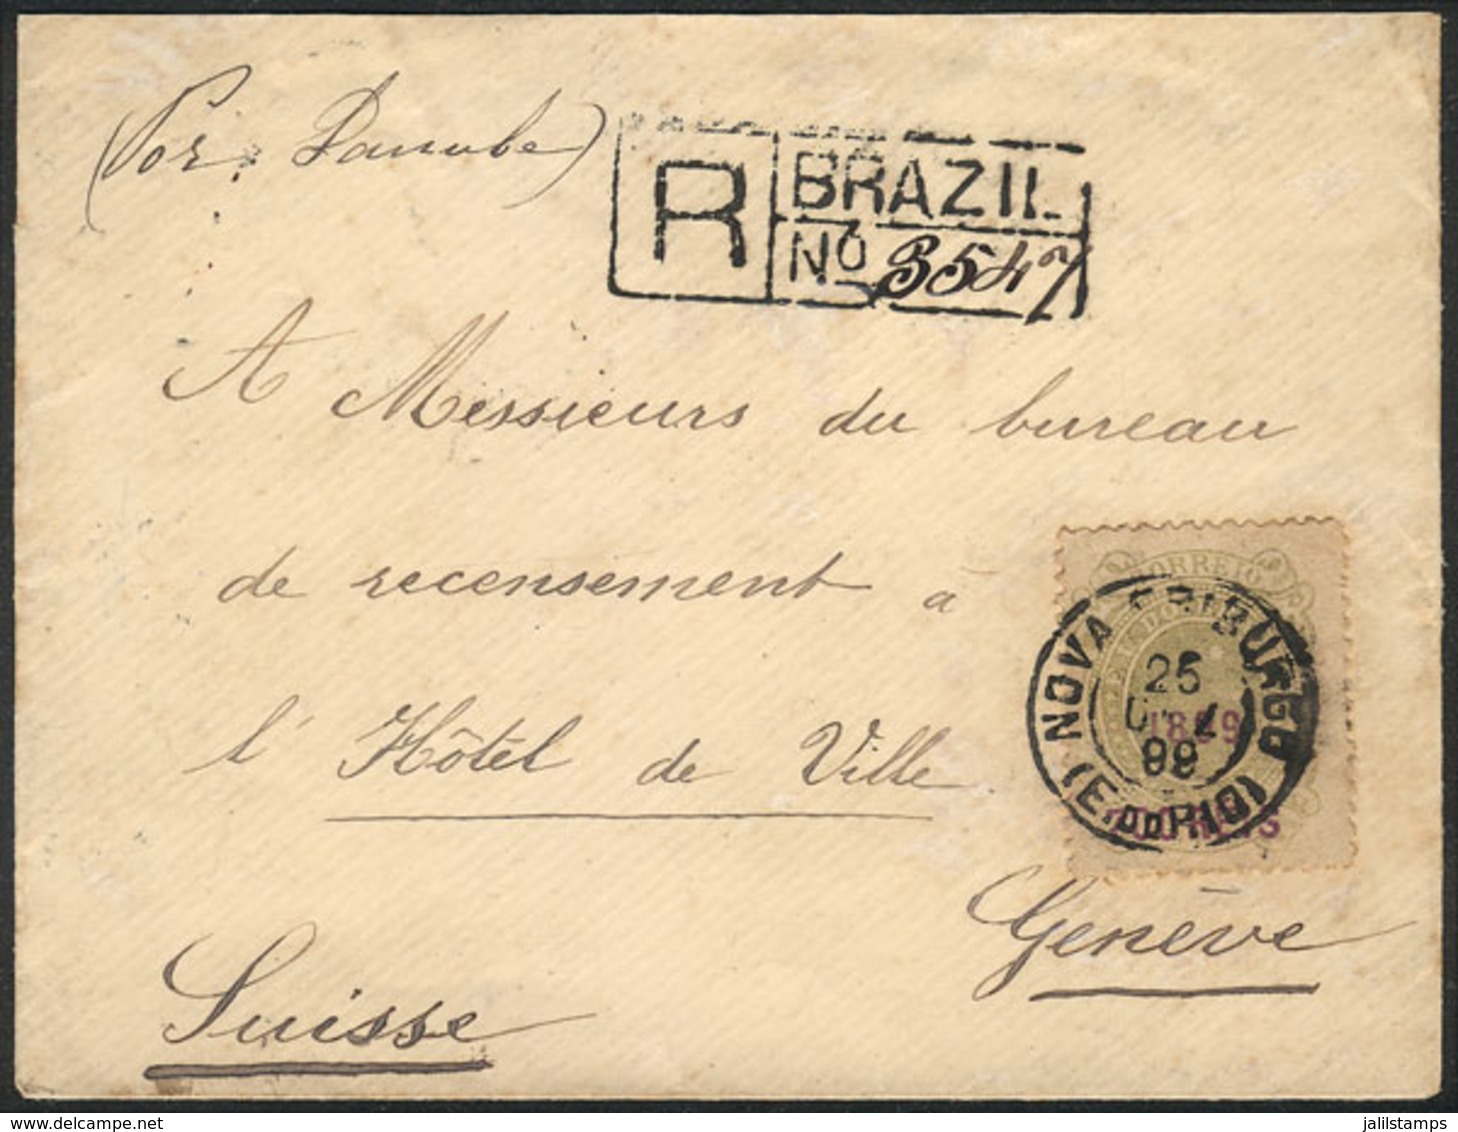 (Por: Danube)
R BRAZIL
No 3547
A Messieurs du bureau
de recensement à
l' Hôtel de Ville
CORREIO
NOVA FRIBURGO
25
1899
99
(E. DO RIO)
Genève
Suisse
jalilstamps